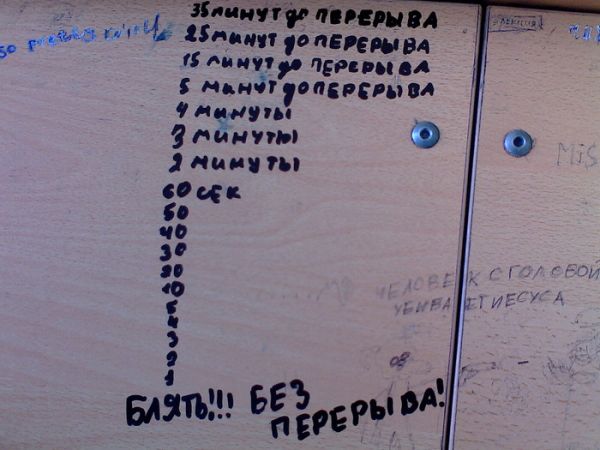 35 минут до ПЕРЕРЫВА
25 минут до ПЕРЕРЫВА
15 минут до ПЕРЕРЫВА
5 минут до ПЕРЕРЫВА
4 минуты
3 минуты
2 минуты
60 сек
50
40
30
20
10
5
4
3
2
1
БЛЯТЬ!!! БЕЗ
ПЕРЕРЫВА!
ЧЕЛОВЕК С ГОЛОВОЙ
УБИВАЕТ ИЕСУСА
MIS